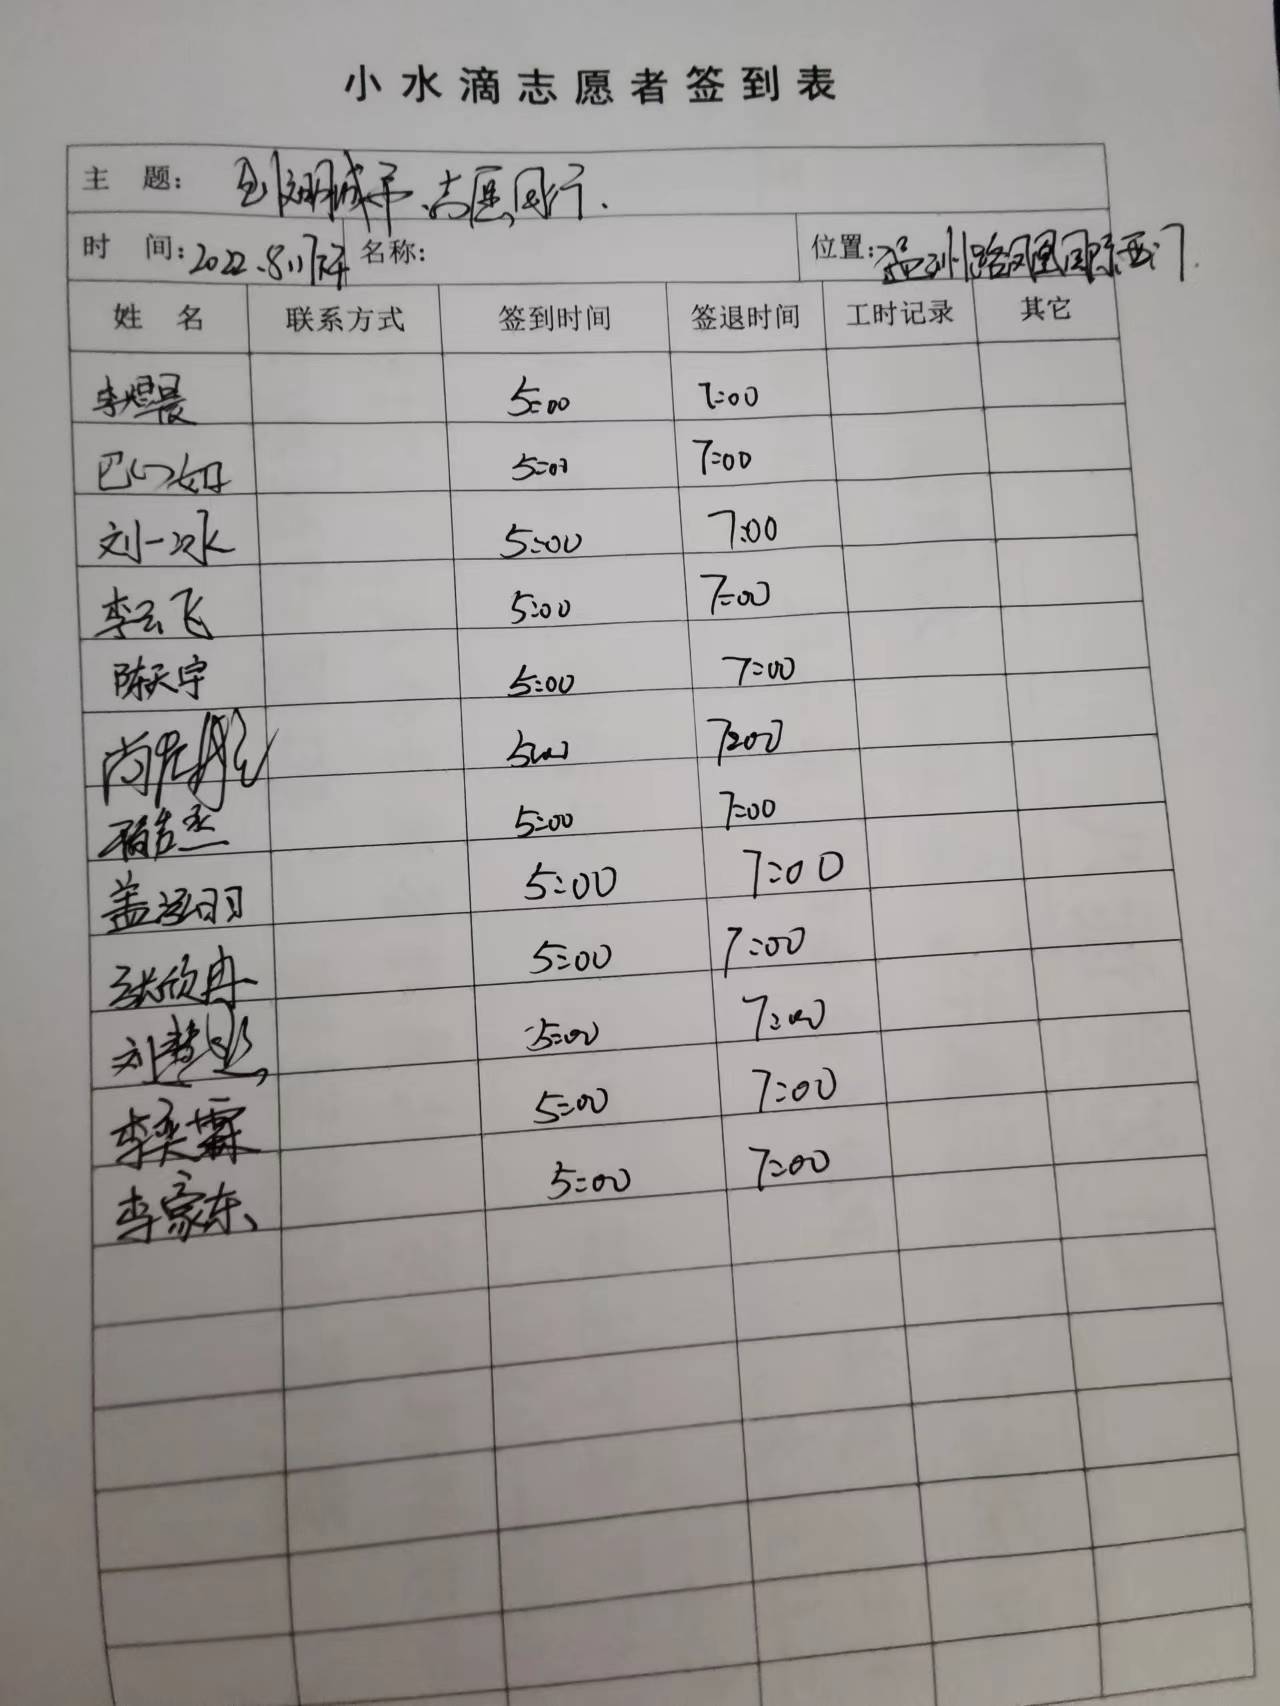 小水滴志愿者签到表
主 题: 创城 志愿同行.
时 间: 2022.8.17 名称: 位置: 温州路凤凰国际西门.
姓 名 联系方式 签到时间 签退时间 工时记录 其它
李煜晨 5:00 7:00
巴心如 5:00 7:00
刘一冰 5:00 7:00
李云飞 5:00 7:00
陈天宇 5:00 7:00
尚 5:00 7:00
5:00 7:00
盖 5:00 7:00
张欣冉 5:00 7:00
刘楚 5:00 7:00
李奕霖 5:00 7:00
李家东 5:00 7:00